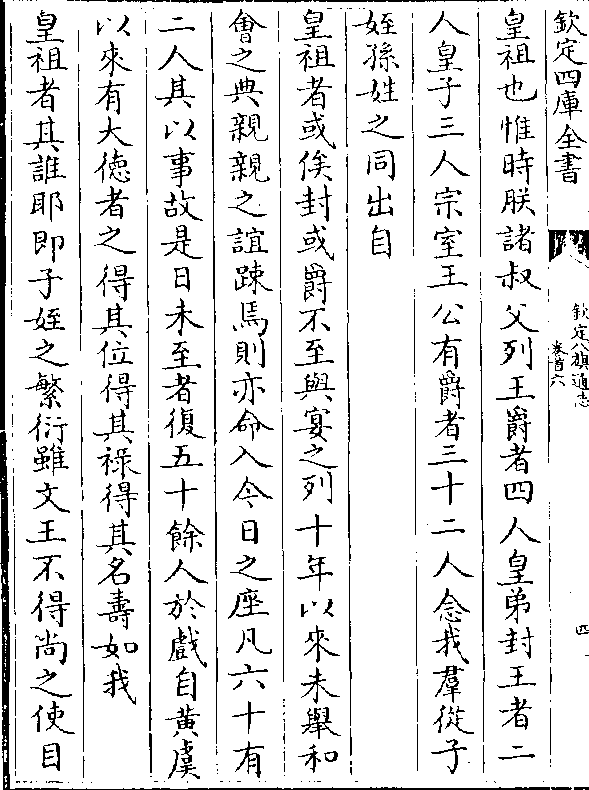 欽定四庫全書
欽定八旗通志
卷首六
四
皇祖也惟時朕諸叔父列王爵者四人皇弟封王者二
人皇子三人宗室王公有爵者三十二人念我羣從子
姪孫姓之同出自
皇祖者或俟封或爵不至與宴之列十年以來未舉和
㑹之典親親之誼踈焉則亦命入今日之座凡六十有
二人其以事故是日未至者復五十餘人於戲自黃虞
以來有大徳者之得其位得其祿得其名壽如我
皇祖者其誰耶即子姪之繁衍雖文王不得尚之使目